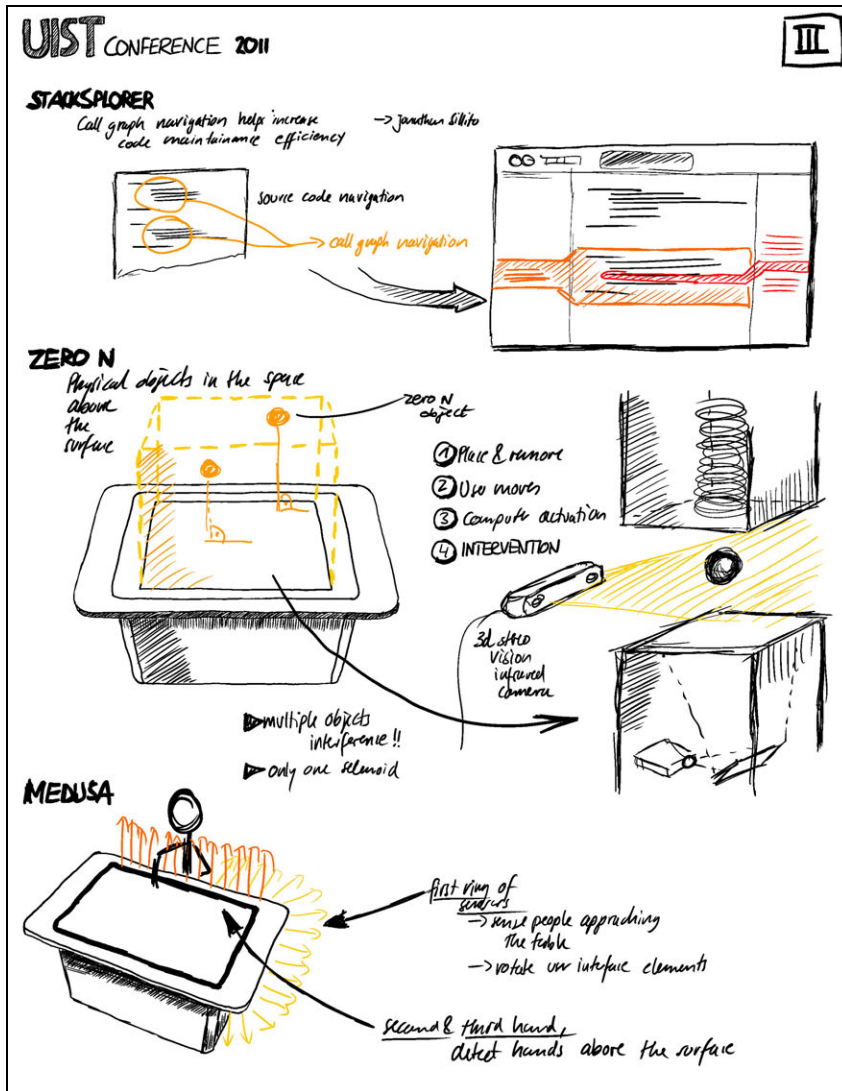 UIST CONFERENCE 2011
III
STACKSPLORER
Call graph navigation helps increase
code maintainance efficiency
→ Jonathan Sillito
source code navigation
→ call graph navigation
ZERO N
Physical objects in the space
above
the
surface
zero N
object
① Place & remove
② User moves
③ Computer activation
④ INTERVENTION
3d stereo
vision
infrared
camera
▶ multiple objects
interference!!
▶ only one selenoid
MEDUSA
first ring of
sensors
→ sense people approaching
the table
→ rotate user interface elements
second & third hand,
detect hands above the surface